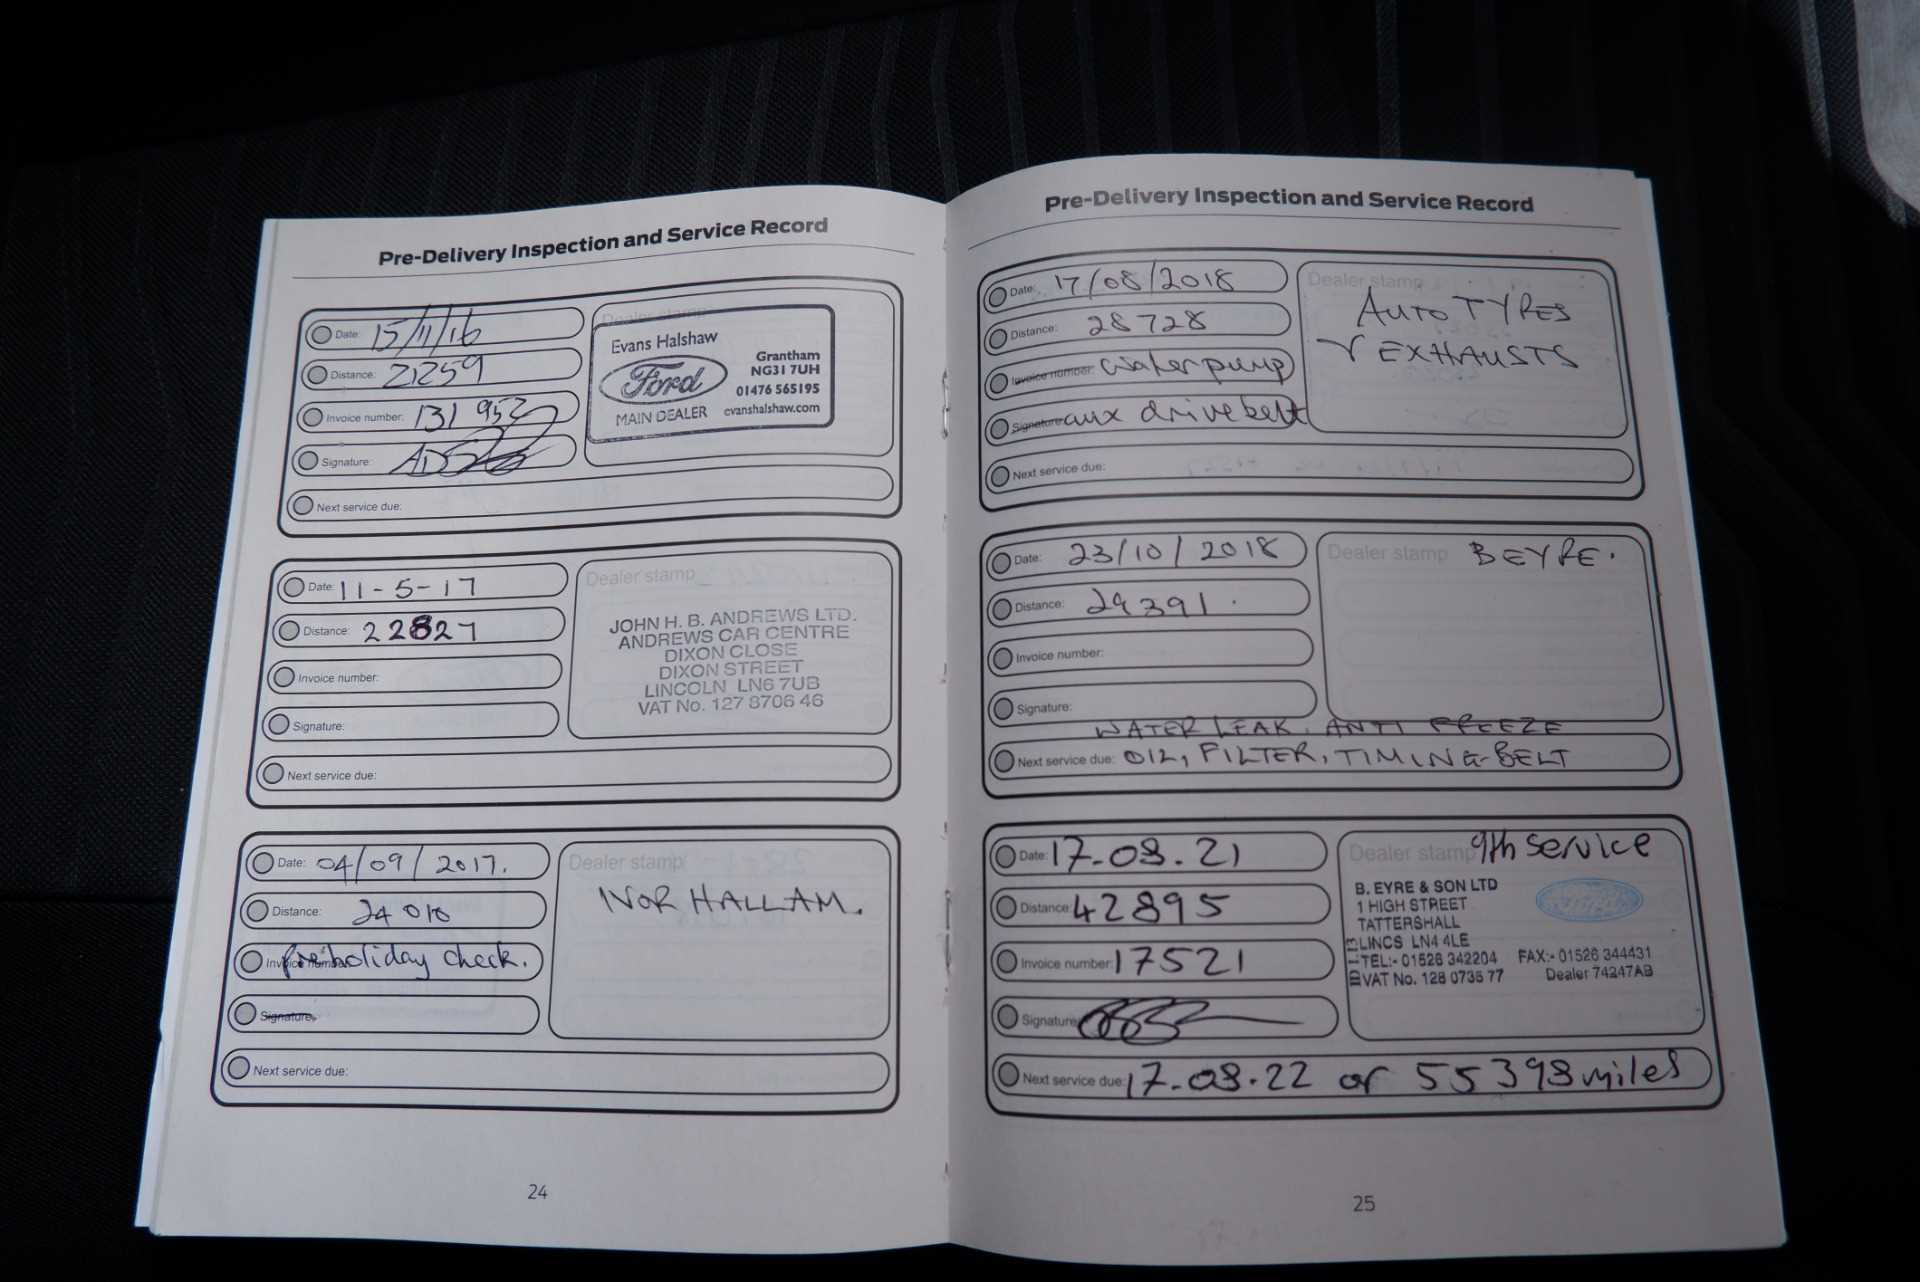 Pre-Delivery Inspection and Service Record
Date: 15/11/16
Distance: 21259
Invoice number: 131 952
Signature:
Next service due:
Dealer stamp
Evans Halshaw
Ford
MAIN DEALER
Grantham
NG31 7UH
01476 565195
evanshalshaw.com
Date: 11-5-17
Distance: 22827
Invoice number:
Signature:
Next service due:
Dealer stamp
JOHN H. B. ANDREWS LTD.
ANDREWS CAR CENTRE
DIXON CLOSE
DIXON STREET
LINCOLN LN6 7UB
VAT No. 127 8706 46
Date: 04/09/2017.
Distance: 24010
Invoice number: Pre holiday check.
Signature:
Next service due:
Dealer stamp
IVOR HALLAM.
24
Pre-Delivery Inspection and Service Record
Date: 17/08/2018
Distance: 28728
Invoice number: waterpump
Signature: aux drivebelt
Next service due:
Dealer stamp
AUTO TYRES
& EXHAUSTS
Date: 23/10/2018
Distance: 29391.
Invoice number:
Signature:
WATER LEAK. ANTI FREEZE
Next service due: OIL, FILTER, TIMING-BELT
Dealer stamp
B EYRE.
Date: 17.08.21
Distance: 42895
Invoice number: 17521
Signature:
Next service due: 17.08.22 or 55398 miles
Dealer stamp 9th service
B. EYRE & SON LTD
1 HIGH STREET
TATTERSHALL
LINCS LN4 4LE
TEL:- 01526 342204 FAX:- 01526 344431
VAT No. 128 0735 77 Dealer 74247AB
25